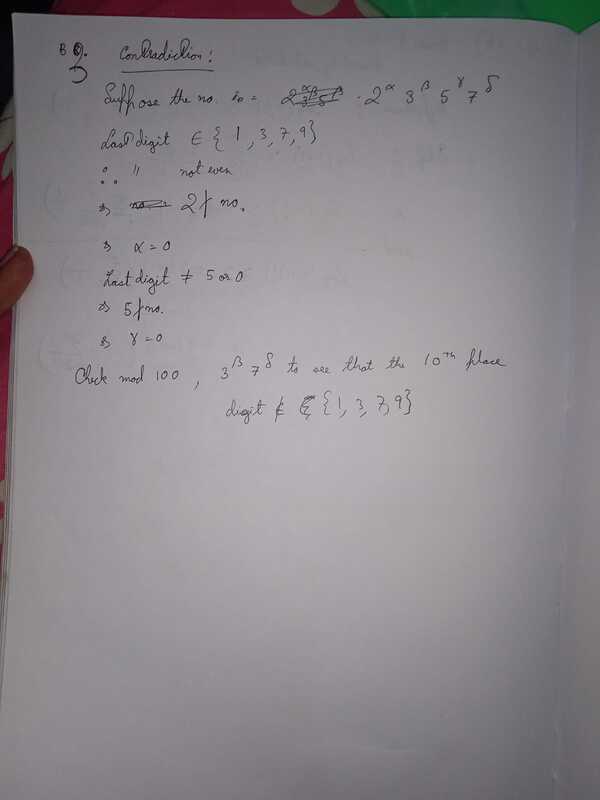 B 3. Contradiction :
Suppose the no. is = 2^α 3^β 5^γ 7^δ
Last digit ∈ { 1, 3, 7, 9}
∴ " not even
⇒ 2 ∤ no.
⇒ α = 0
Last digit ≠ 5 or 0
⇒ 5 ∤ no.
⇒ γ = 0
Check mod 100, 3^β 7^δ to see that the 10th place
digit ∉ {1, 3, 7, 9}